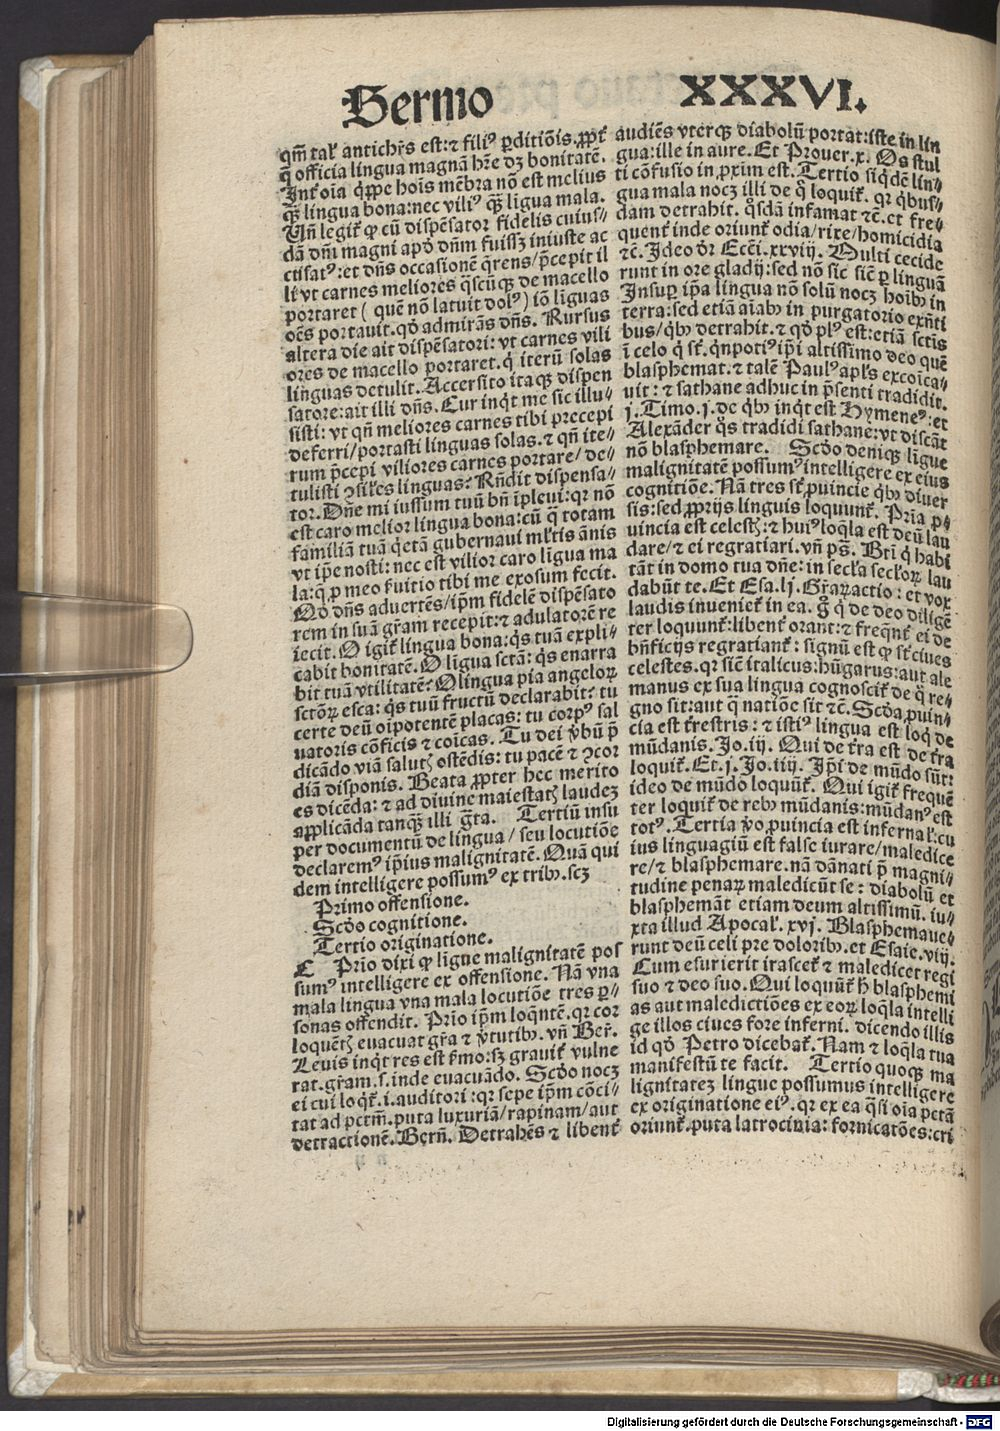 Sermo XXXVI.
qm̄ tal' antichr̄s est: ⁊ fili⁹ ꝑditiōis. ꝓpt̄
q̄ officia lingua magnā hr̄e dꝫ bonitatē.
Int̄ oīa q̇ꝑpe hoīs mēbra nō est melius
qꝫ̄ lingua bona: nec vili⁹ qꝫ̄ līgua mala.
Uñ legit̄ ꝙ cū dispēsator fidelis cuius⸗
dā dn̄i magni apd̓ dn̄m fuissꝫ iniuste ac
ctisat⁹: et dn̄s occasionē q̄rens/ p̄cepit il
li vt carnes meliores q̄scūqꝫ de macello
portaret ( quē nō latuit dol⁹ ) iō līguas
oēs portauit. qd̓ admirās dn̄s. Rursus
altera die ait dispēsatori: vt carnes vili
ores de macello portaret. q̇ iterū solas
linguas detulit. Accersito itaqꝫ dispen
satore: ait illi dn̄s. Cur inq̇t me sic illu⸗
sisti: vt qn̄ meliores carnes tibi precepi
deferri/ portasti linguas solas. ⁊ qn̄ ite⸗
rum p̄cepi viliores carnes portare/ de⸗
tulisti ꝯsil'es linguas? Rn̄dit dispensa⸗
tor. Dn̄e mi iussum tuū bn̄ īpleui: qꝛ nō
est caro melior lingua bona: cū q̄ totam
familiā tuā q̇etā gubernaui ml't̄is ānis
vt ip̄e nosti: nec est vilior caro līgua ma
la: q̄ ꝓ meo ẜuitio tibi me exosum fecit.
Qd̓ dn̄s aduertēs/ ip̄m fidelē dispēsato
rem in suā gr̄am recepit: ⁊ adulatorē re
iecit. O igit̄ lingua bona: q̇s tuā expli⸗
cabit bonitatē. O līgua sctā: q̇s enarra
bit tuā vtilitatē? O lingua pia angeloꝝ
sctōꝝ esca: q̇s tuū fructū declarabit? tu
certe deū oīpotentē placas: tu corp⁹ sal
uatoris cōficis ⁊ coīcas. Tu dei v̓bū p̄
dicādo viā salutꝭ ostēdis: tu pacē ⁊ ꝯcor
diā disponis. Beata ꝓpter hec merito
es dicēda: ⁊ ad diuine maiestatꝭ laudeꝫ
applicāda tanqꝫ̄ illi gr̄ta. Tertiū insu
per documentū de lingua/ seu locutiōe
declarem⁹ ip̄ius malignitatē. Quā qui
dem intelligere possum⁹ ex trib⁹. scꝫ
Primo offensione.
Scd̓o cognitione.
Tertio originatione.
C Prīo dixi ꝙ ligue malignitatē pos
sum⁹ intelligere ex offensione. Nā vna
mala lingua vna mala locutiōe tres ꝑ⸗
sonas offendit. Prīo ip̄m loq̄ntē. qꝛ cor
loquētꝭ euacuat gr̄a ⁊ v̓tutib⁹. vñ Ber̄.
Leuis inq̇t res est ẜmo: sꝫ grauit̄ vulne
rat. gr̄am. s. inde euacuādo. Scd̓o nocꝫ
ei cui loq̇t̄. i. auditori: qꝛ sepe ip̄m cōci⸗
tat ad pctm̄. puta luxuriā/ rapinam/ aut
detractionē. Berñ. Detrahēs ⁊ libent̄
audiēs vterqꝫ diabolū portat: iste in lin
gua: ille in aure. Et Prouer. x. Os stul
ti cōfusio in ꝓxim est. Tertio siq̇dē lin⸗
gua mala nocꝫ illi de q̇ loquit̄. qꝛ q̇bus⸗
dam detrahit. q̇sdā infamat ⁊c. et fre⸗
quent̄ inde oriunt̄ odia/ rixe/ homicidia
⁊c. Ideo d̓r Ecci. xxviij. Multi cecide
runt in ore gladij: sed nō sic sicᷓ ꝑ linguā
Insuꝑ ip̄a lingua nō solū nocꝫ hoīb⁹ in
terra: sed etiā aīab⁹ in purgatorio exn̄ti
bus/ q̇b⁹ detrahit. ⁊ qd̓ pl⁹ est: etiā sctīs
ī celo q̇ st̄. q̇npoti⁹ ip̄i altissimo deo quē
blasphemat. ⁊ talē Paul⁹ apl's excoīca⸗
uit: ⁊ sathane adhuc in p̄senti tradidit.
j. Timo. j. de q̇b⁹ inq̇t est Hymene⁹: et
Alexāder q̇s tradidi sathane: vt discāt
nō blasphemare. Scd̓o deniqꝫ ligue
malignitatē possum⁹ intelligere ex eius
cognitiōe. Nā tres st̄ ꝓuincie q̇b⁹ diuer
sis: sed ꝓprijs linguis loquunt̄. Pria ꝓ⸗
uincia est celestꝭ: ⁊ hui⁹ loq̄la est deū lau
dare/ ⁊ ei regratiari. vñ ps̄. Bti q̇ habi
tāt in domo tua dn̄e: in secl'a secl'oꝝ lau
dabūt te. Et Esa. lj. Gr̄aꝝactio: et vox
laudis inueniet̄ in ea. g̊ q̇ de deo diligē
ter loquunt̄: libent̄ orant: ⁊ freq̄nt̄ ei de
bn̄ficijs regratiant̄: signū est ꝙ st̄ ciues
celestes. qꝛ sicᷓ italicus: hūgarus: aut ale
manus ex sua lingua cognoscit̄ de q̇ re⸗
gno sit: aut q̄ natiōe sit ⁊c. Scd̓a ꝓuin⸗
cia est t̄restris: ⁊ isti⁹ lingua est loq̇ de
mūdanis. Jo. iij. Qui de t̄ra est de t̄ra
loquit̄. Et. j. Jo. iiij. Ip̄i de mūdo sūt:
ideo de mūdo loquūt̄. Qui igit̄ frequē
ter loquit̄ de reb⁹ mūdanis: mūdan⁹ est
tot⁹. Tertia v̓o ꝓuincia est infernal': cu
ius linguagiū est false iurare/ maledice
re/ ⁊ blasphemare. nā dānati p̄ magni⸗
tudine penaꝝ maledicūt se: diabolū et
blasphemāt etiam deum altissimū. iu⸗
xta illud Apocal'. xvj. Blasphemaue⸗
runt deū celi pre dolorib⁹. et Esaie. viij.
Cum esurierit irascet̄ ⁊ maledicet regi
suo ⁊ deo suo. Qui loquūt̄ h̄ blasphemi
as aut maledictiōes ex eoꝝ loq̄la intelli
ge illos ciues fore inferni. dicendo illis
id qd̓ Petro dicebat̄. Nam ⁊ loq̄la tua
manifestū te facit. Tertio quoqꝫ ma
lignitateꝫ lingue possumus intelligere
ex originatione ei⁹. qꝛ ex ea q̄si oīa pctā
oriunt̄. puta latrocinia: fornicatōes: cri
Digitalisierung gefördert durch die Deutsche Forschungsgemeinschaft - DFG